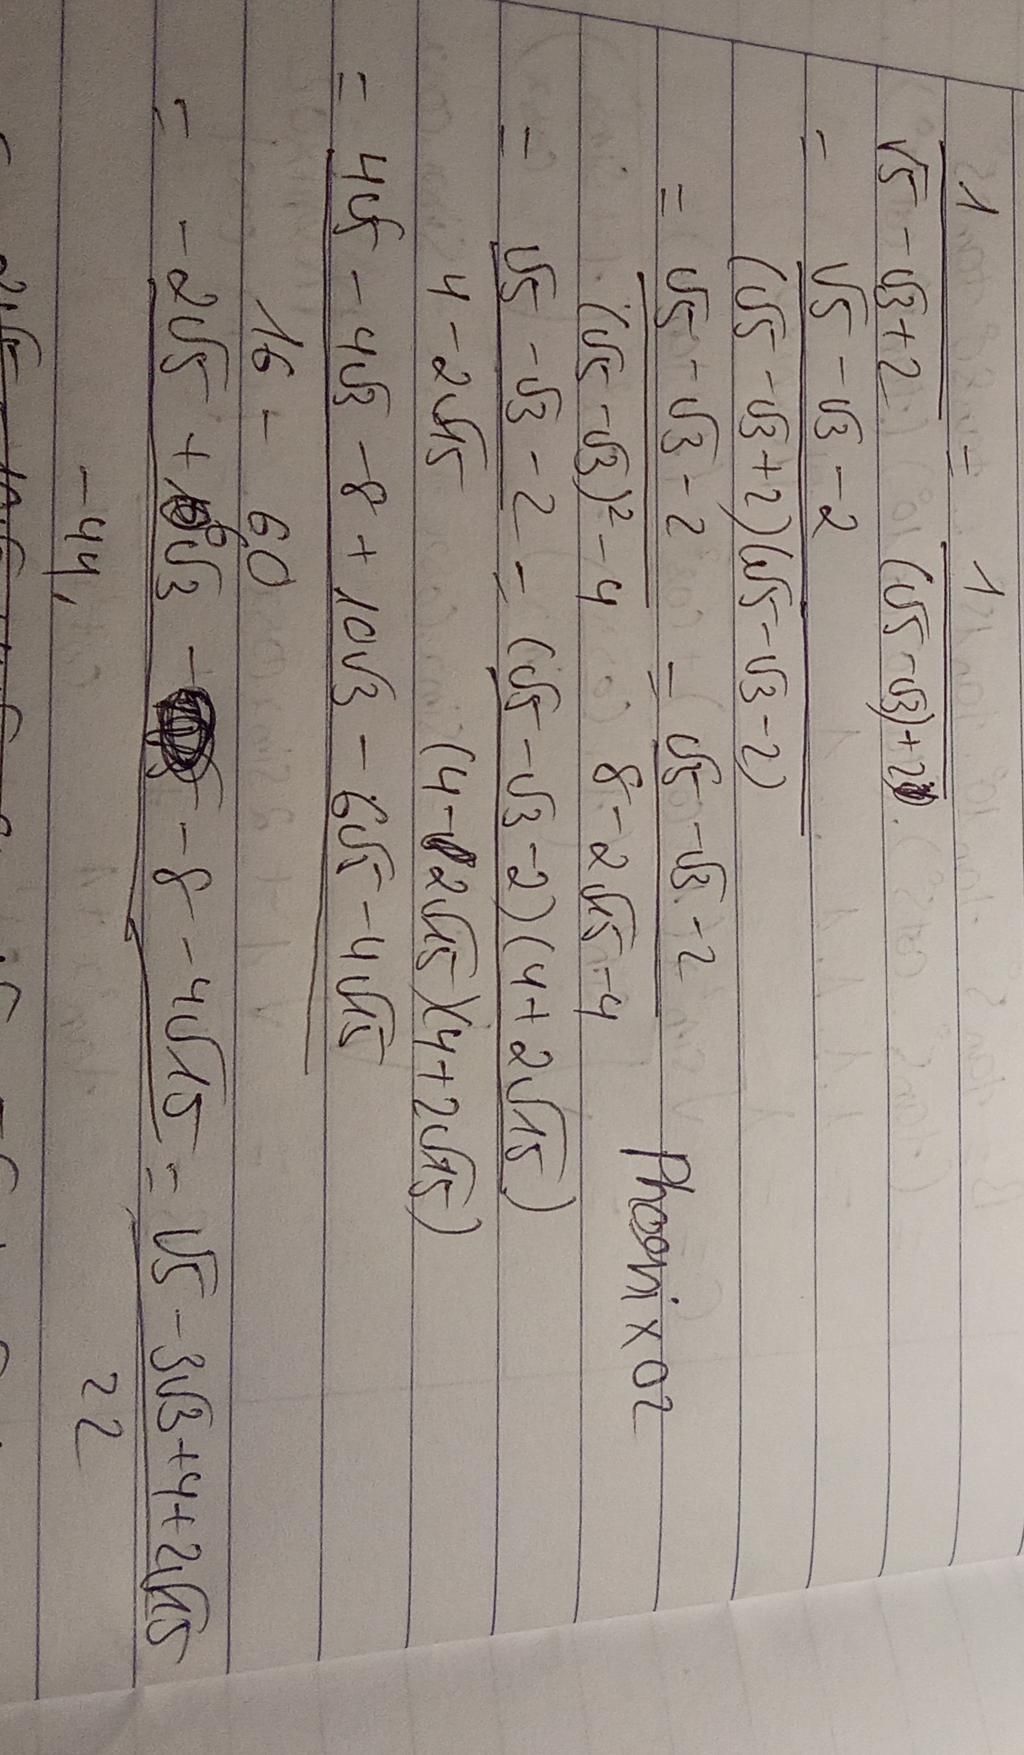 1 / (√5 - √3 + 2) = 1 / ((√5 - √3) + 2)
= (√5 - √3 - 2) / ((√5 - √3 + 2)(√5 - √3 - 2))
= (√5 - √3 - 2) / ((√5 - √3)² - 4) = (√5 - √3 - 2) / (8 - 2√15 - 4)
Phoenix02
= (√5 - √3 - 2) / (4 - 2√15) = ((√5 - √3 - 2)(4 + 2√15)) / ((4 - 2√15)(4 + 2√15))
= (4√5 - 4√3 - 8 + 10√3 - 6√5 - 4√15) / (16 - 60)
= (-2√5 + 6√3 - 8 - 4√15) / (-44) = (√5 - 3√3 + 4 + 2√15) / 22